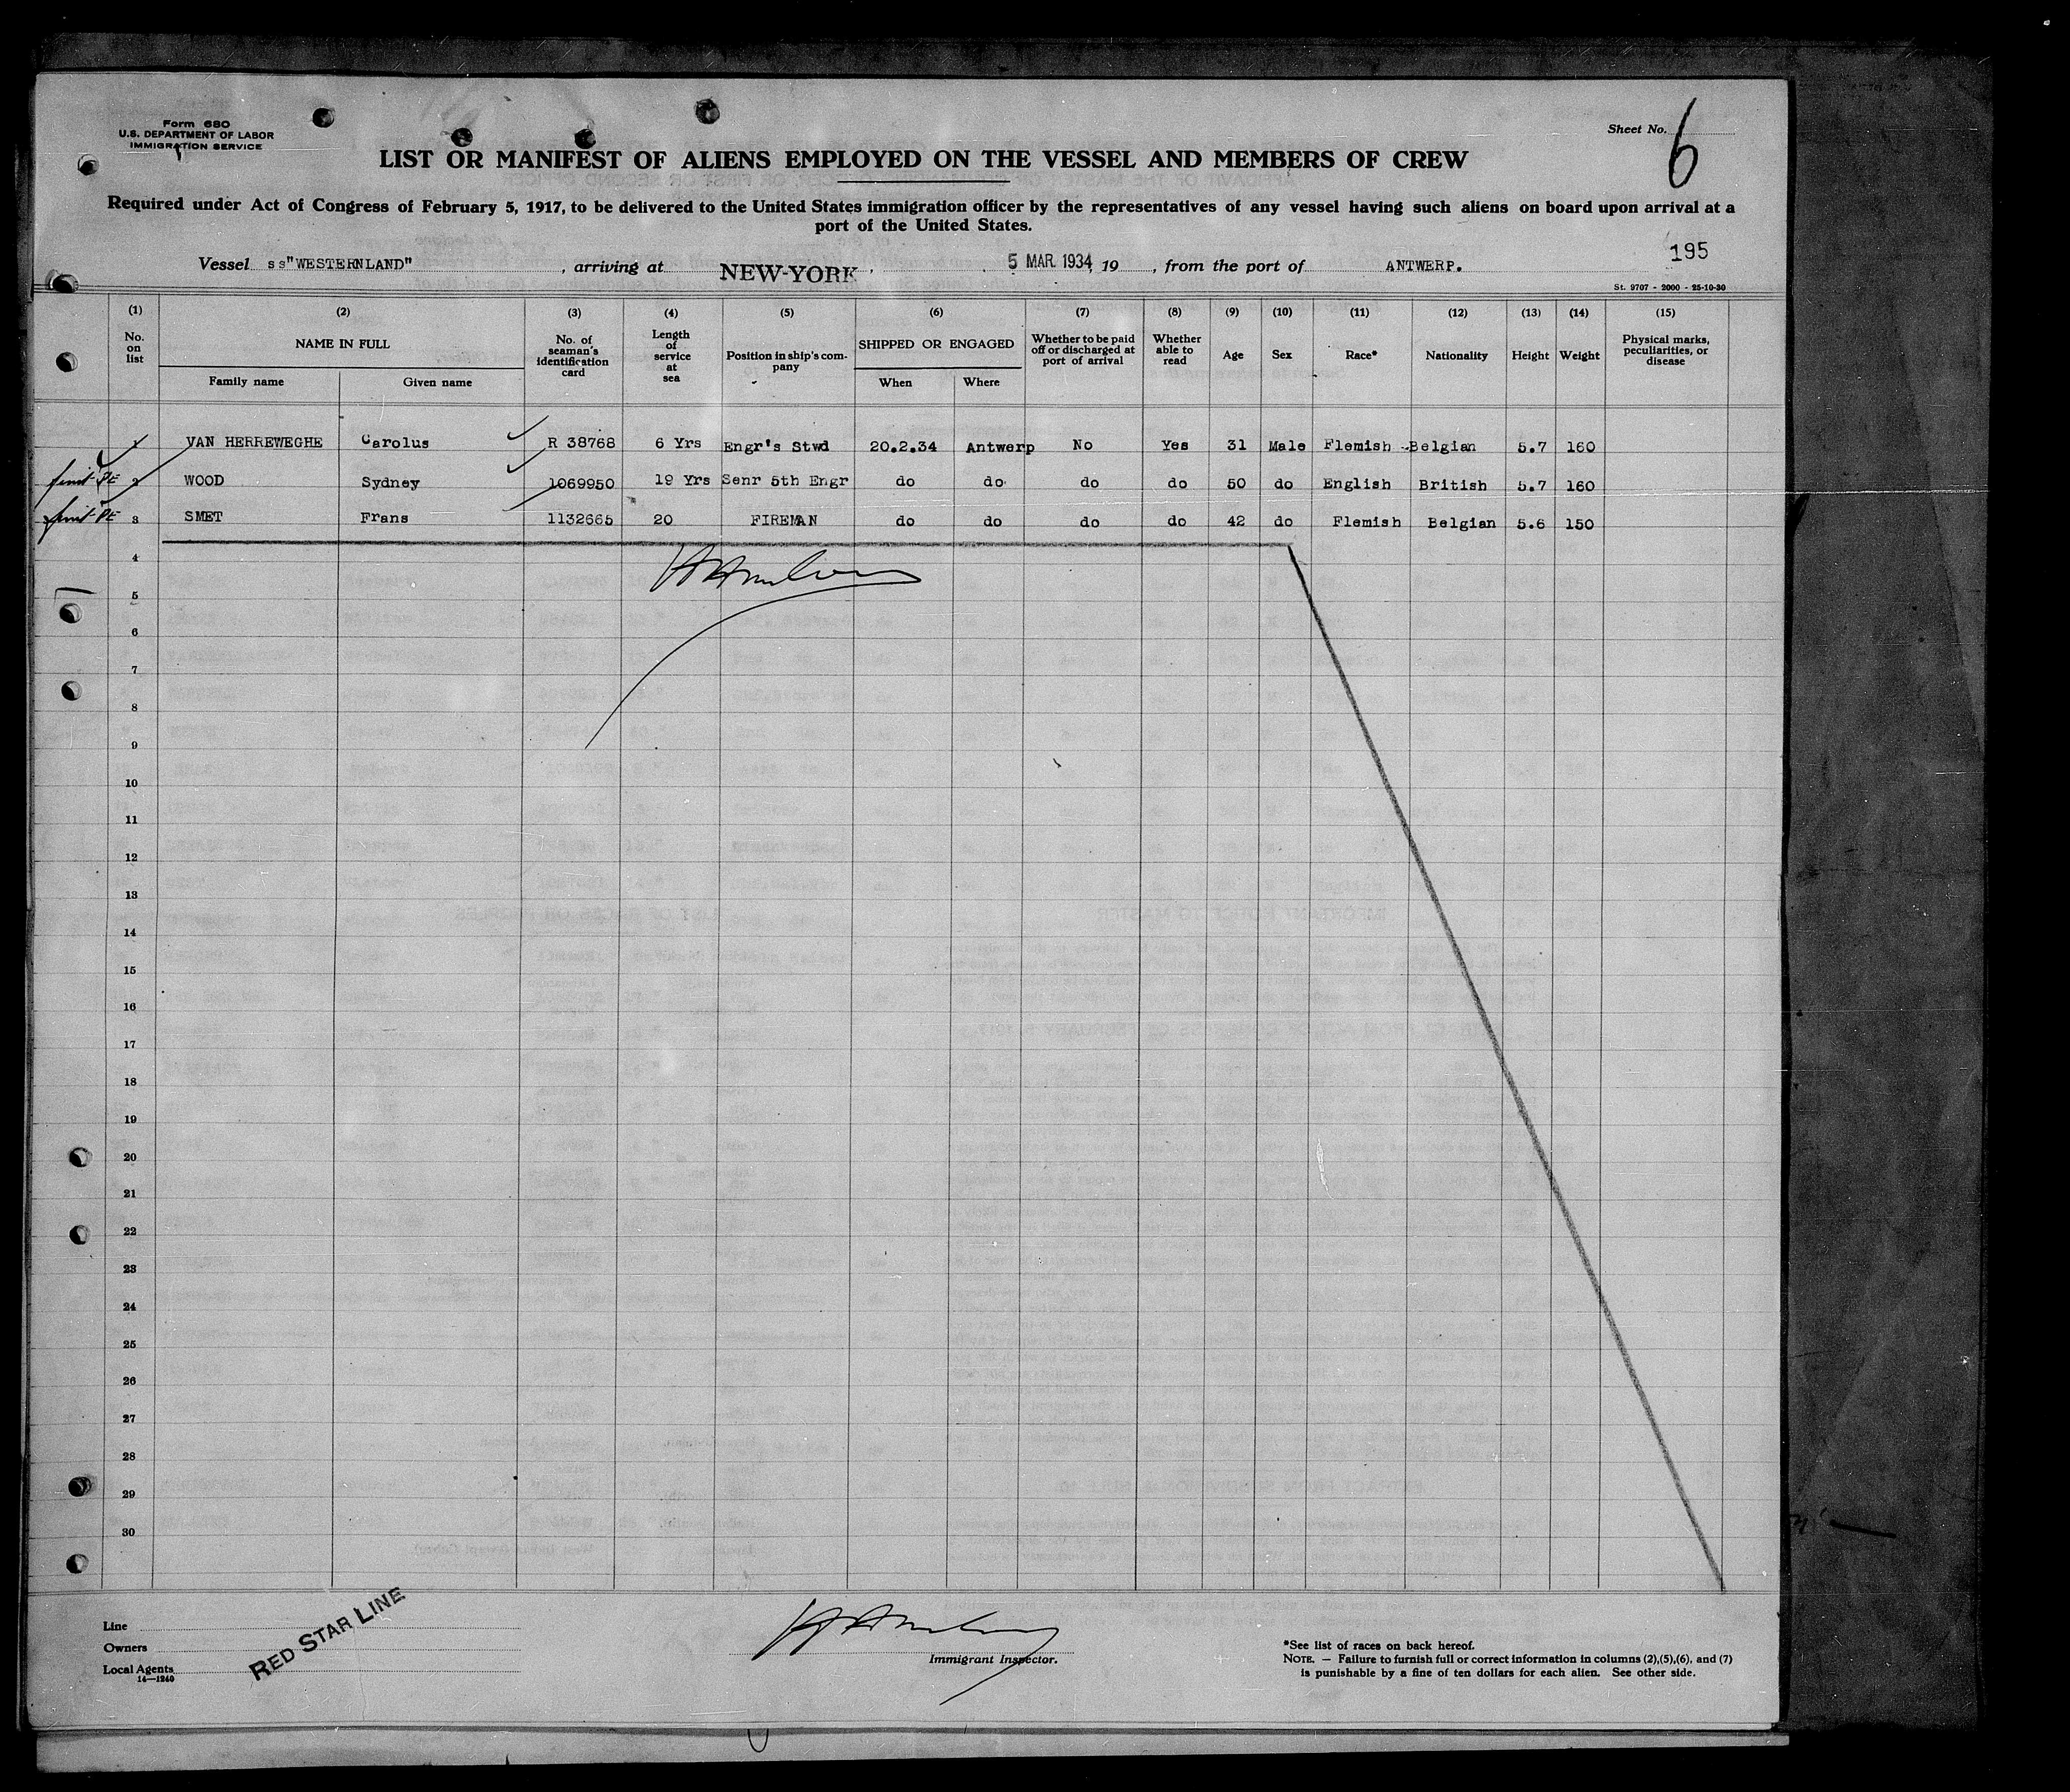 Form 680
U.S. DEPARTMENT OF LABOR
IMMIGRATION SERVICE
Sheet No. 6
LIST OR MANIFEST OF ALIENS EMPLOYED ON THE VESSEL AND MEMBERS OF CREW
Required under Act of Congress of February 5, 1917, to be delivered to the United States immigration officer by the representatives of any vessel having such aliens on board upon arrival at a
port of the United States.
195
Vessel ss"WESTERNLAND" , arriving at NEW-YORK , 5 MAR. 1934, 19 , from the port of ANTWERP.
St. 9707 - 2000 - 25-10-30
(1) (2) (3) (4) (5) (6) (7) (8) (9) (10) (11) (12) (13) (14) (15)
No. on list NAME IN FULL Family name Given name No. of seaman's identification card Length of service at sea Position in ship's company SHIPPED OR ENGAGED When Where Whether to be paid off or discharged at port of arrival Whether able to read Age Sex Race* Nationality Height Weight Physical marks, peculiarities, or disease
1 VAN HERREWEGHE Carolus R 38768 6 Yrs Engr's Stwd 20.2.34 Antwerp No Yes 31 Male Flemish Belgian 5.7 160
2 WOOD Sydney 1069950 19 Yrs Senr 5th Engr do do do do 50 do English British 5.7 160
3 SMET Frans 1132665 20 FIREMAN do do do do 42 do Flemish Belgian 5.6 150
4
5
6
7
8
9
10
11
12
13
14
15
16
17
18
19
20
21
22
23
24
25
26
27
28
29
30
Line
Owners
Local Agents
14—1240
RED STAR LINE
Immigrant Inspector.
*See list of races on back hereof.
NOTE. — Failure to furnish full or correct information in columns (2),(5),(6), and (7)
is punishable by a fine of ten dollars for each alien. See other side.